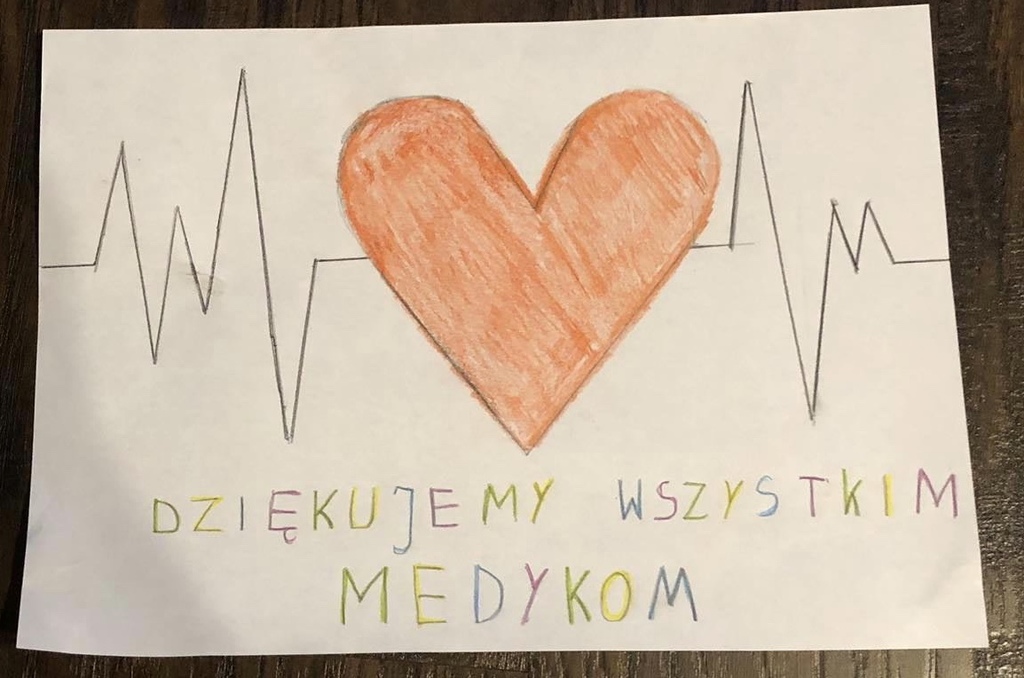 DZIĘKUJEMY WSZYSTKIM
MEDYKOM